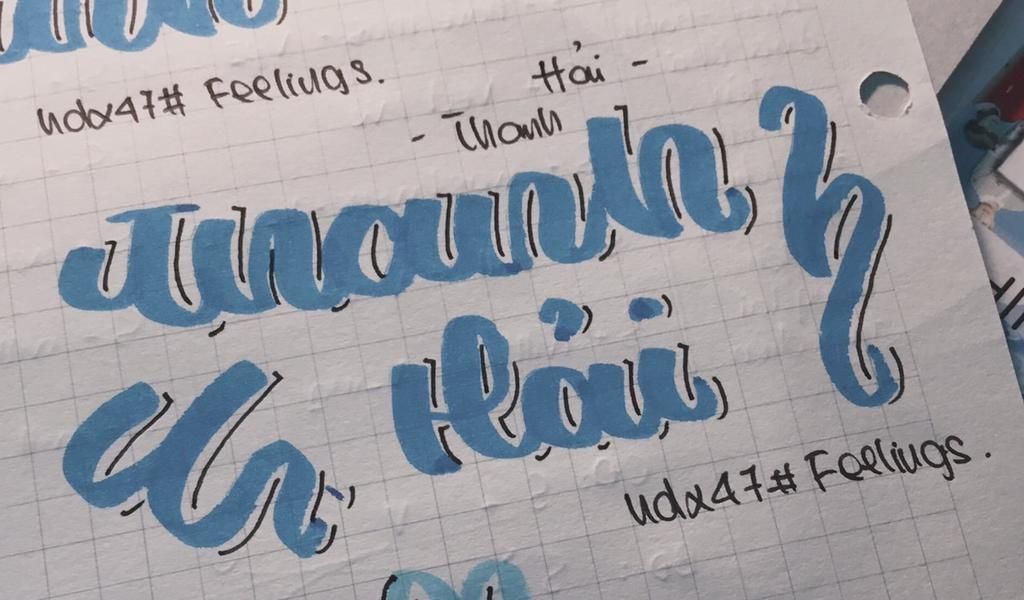 ndx47# Feelings.
Hải -
- Thanh
Thanh
Hải
ndx47# Feelings.